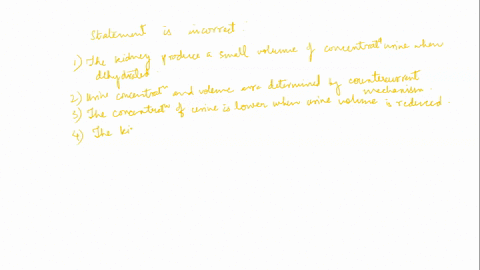 Statement is incorrect :
1) The kidney produce a small volume of concentratᵈ urine when
dehydrated.
2) Urine concentratⁿ and volume are determined by countercurrent
mechanism.
3) The concentratⁿ of urine is lower when urine volume is reduced.
4) The ki